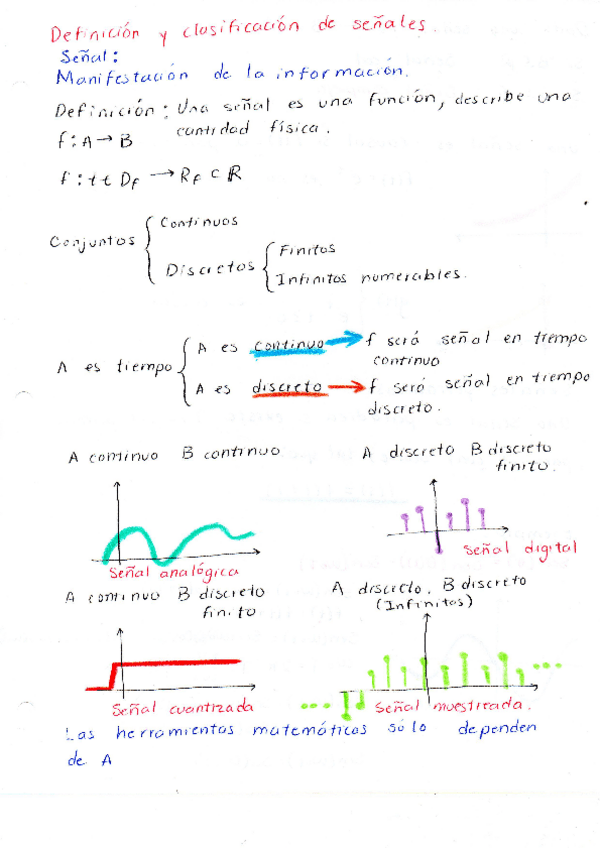 Definición y clasificación de señales
Señal:
Manifestación de la información.
Definición: Una señal es una función, describe una
f: A → B cantidad física.
f: t ∈ Df → Rf ⊂ ℝ
Conjuntos { Continuos
Discretos { Finitos
Infinitos numerables.
A es tiempo { A es continuo → f será señal en tiempo
continuo
A es discreto → f será señal en tiempo
discreto.
A continuo B continuo
A discreto B discreto
finito.
Señal analógica
señal digital
A continuo B discreto
finito
A discreto. B discreto
(Infinitos)
Señal cuantizada
señal muestreada.
Las herramientas matemáticas sólo dependen
de A